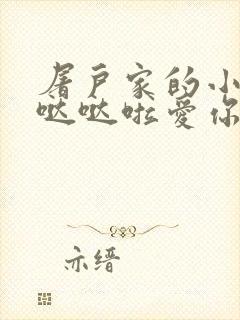 屠户家的小
哒哒啦爱你
亦缙